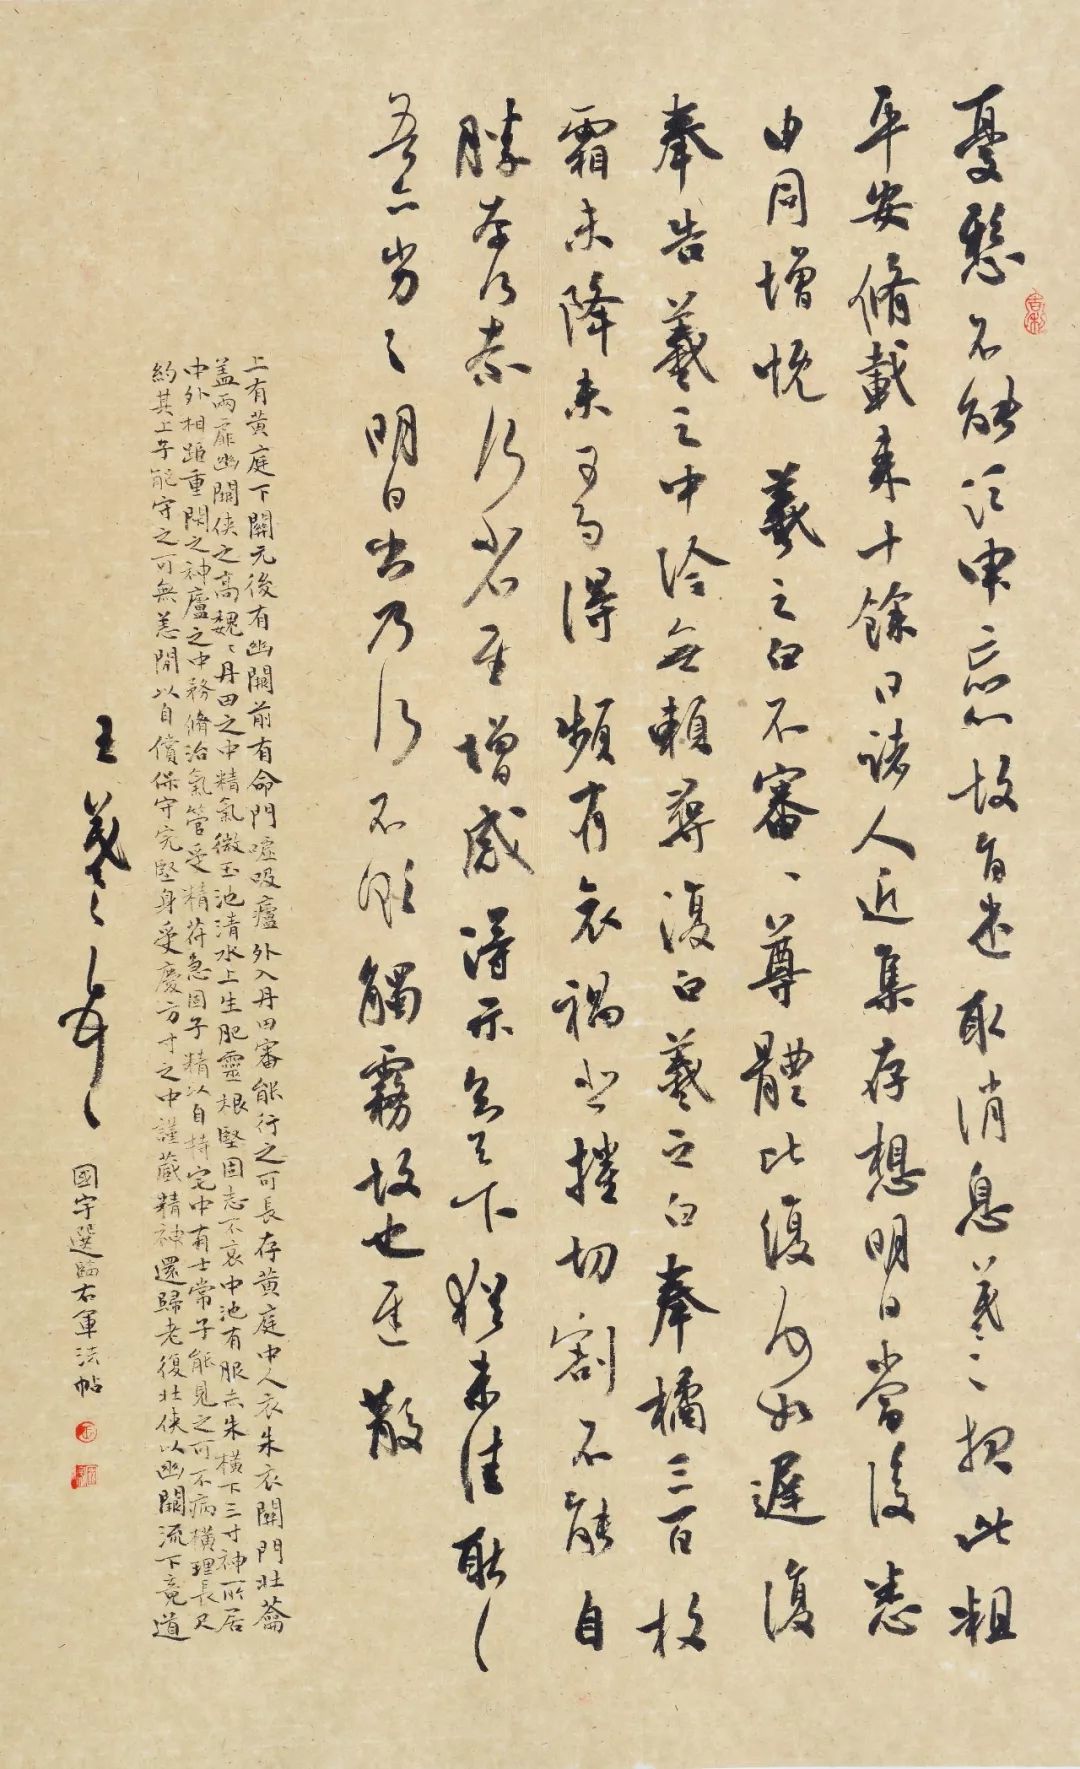 憂懸不能須臾忘心故旨遣取消息羲之報此粗
平安脩載來十餘日諸人近集存想明日當復悉
由同增慨 羲之白不審、尊體比復何如遲復
奉告羲之中冷無賴尋復白羲之白奉橘三百枚
霜未降未可多得 頻有哀禍悲摧切割不能自
勝奈何奈何省慰增感得示知足下猶未佳耿〻
吾亦劣〻明日出乃行不欲觸霧故也遲散
上有黃庭下關元後有幽闕前有命門噓吸廬外入丹田審能行之可長存黃庭中人衣朱衣關門壯蘥
盖兩扉幽闕侠之高魏〻丹田之中精氣微玉池清水上生肥靈根堅固志不衰中池有服赤朱橫下三寸神所居
中外相距重閉之神廬之中務脩治氣管受精符急固子精以自持宅中有士常子能見之可不病橫理長尺
約其上子能守之可無恙間以自償保守完堅身受慶方寸之中謹藏精神還歸老復壯侠以幽闕流下竟道
王羲之頓首
國宇選臨右軍法帖